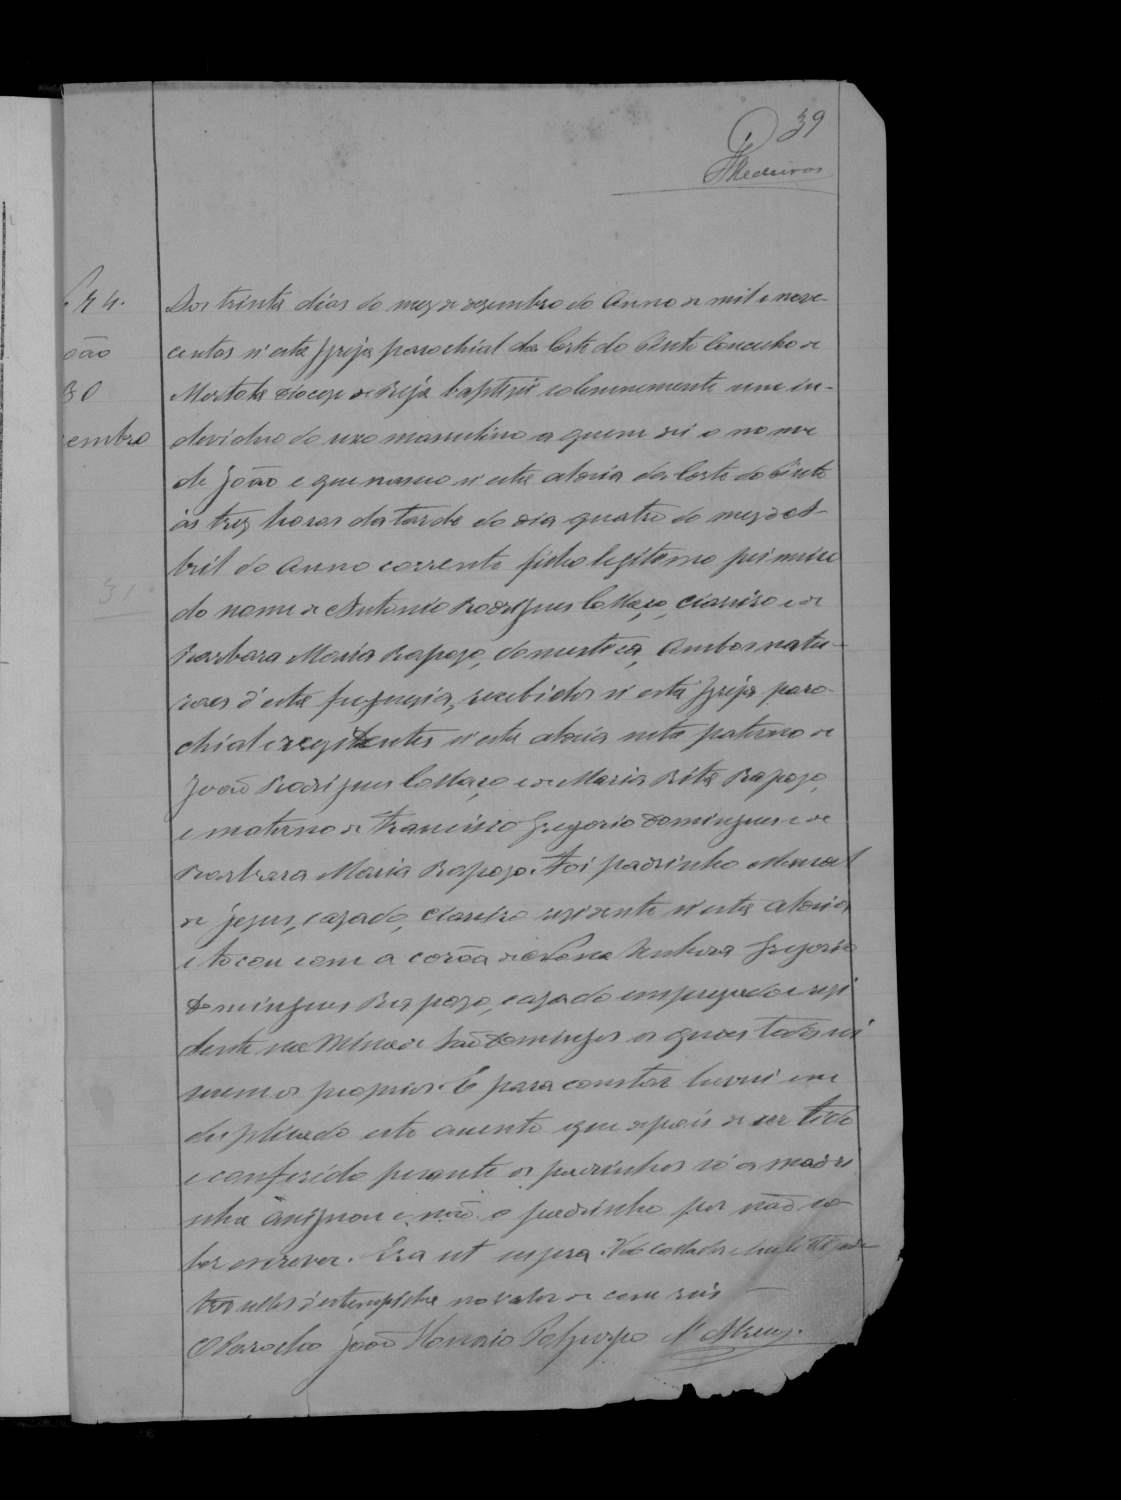 39
Medeiros
N 4.
oão
30
embro
31
Aos trinta dias do mez de dezembro do Anno de mil e nove-
centos n'esta Igreja parochial da Corte do Pinto Concelho de
Mertola diocese de Beja baptizei solemnemente um in-
deviduo do sexo masculino a quem dei o nome
de João e que nasceu n'esta aldeia da Corte do Pinto
ás trez horas da tarde do dia quatro do mez de A-
bril do Anno corrente filho legitimo primeiro
do nome de Antonio Rodrigues Collaço, e de
Barbara Maria Rapozo, domestica, Ambos natu-
raes d'esta freguezia, recebidos n'esta Igreja paro-
chial e rezidentes n'esta aldeia neto paterno de
João Rodrigues Collaço e de Maria Rita Rapozo,
e materno de Francisco Gregorio Domingues e de
Barbara Maria Rapozo. Foi padrinho Manoel
de Jezus, cazado, rezidente n'esta aldeia
e tocou com a corôa de Nossa Senhora Gregorio
Domingues Rapozo, cazado empregado e rezi
dente na Mina de São Domingos os quaes todos sei
serem os proprios. E para constar lavrei em
duplicado este assento que depois de ser lido
e conferido perante os padrinhos só a madri
nha assignou e não o padrinho por não sa
ber escrever. Era ut supra.
sellos d'estampilha no valor de cem reis
O Parocho João